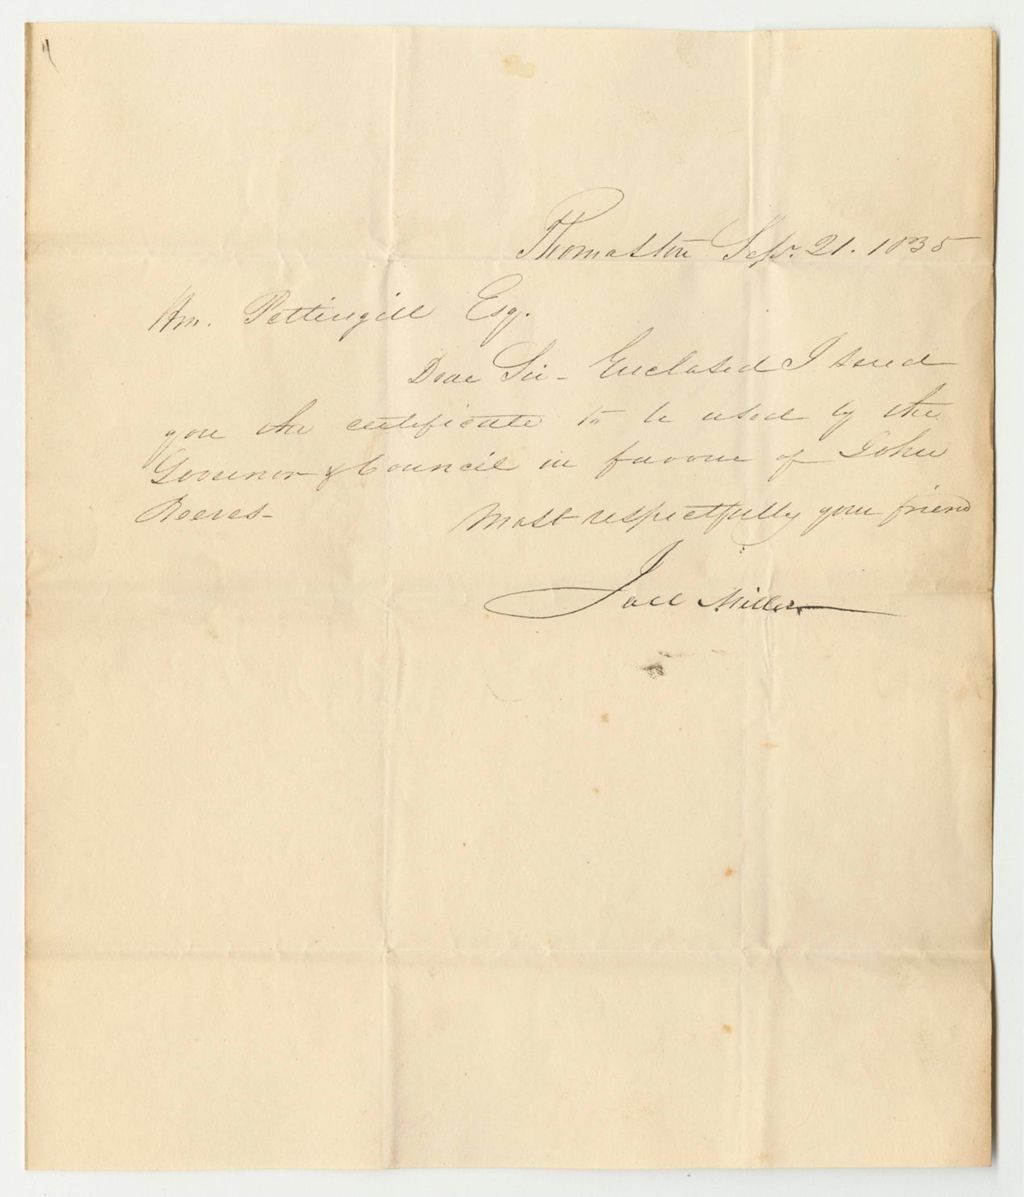 Thomaston Sepr. 21. 1835
Wm. Pettingill Esq.
Dear Sir - Enclosed I send
you the certificate to be used by the
Governor & Council in favour of John
Reeves -
Most respectfully your friend
Joel Miller